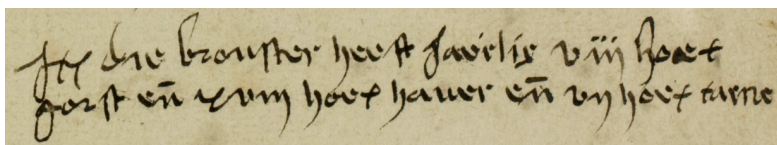 Itẽ die brouster heeft jaerlix viii hoet
gorst eñ xviii hoet haver eñ vii hoet tarwe